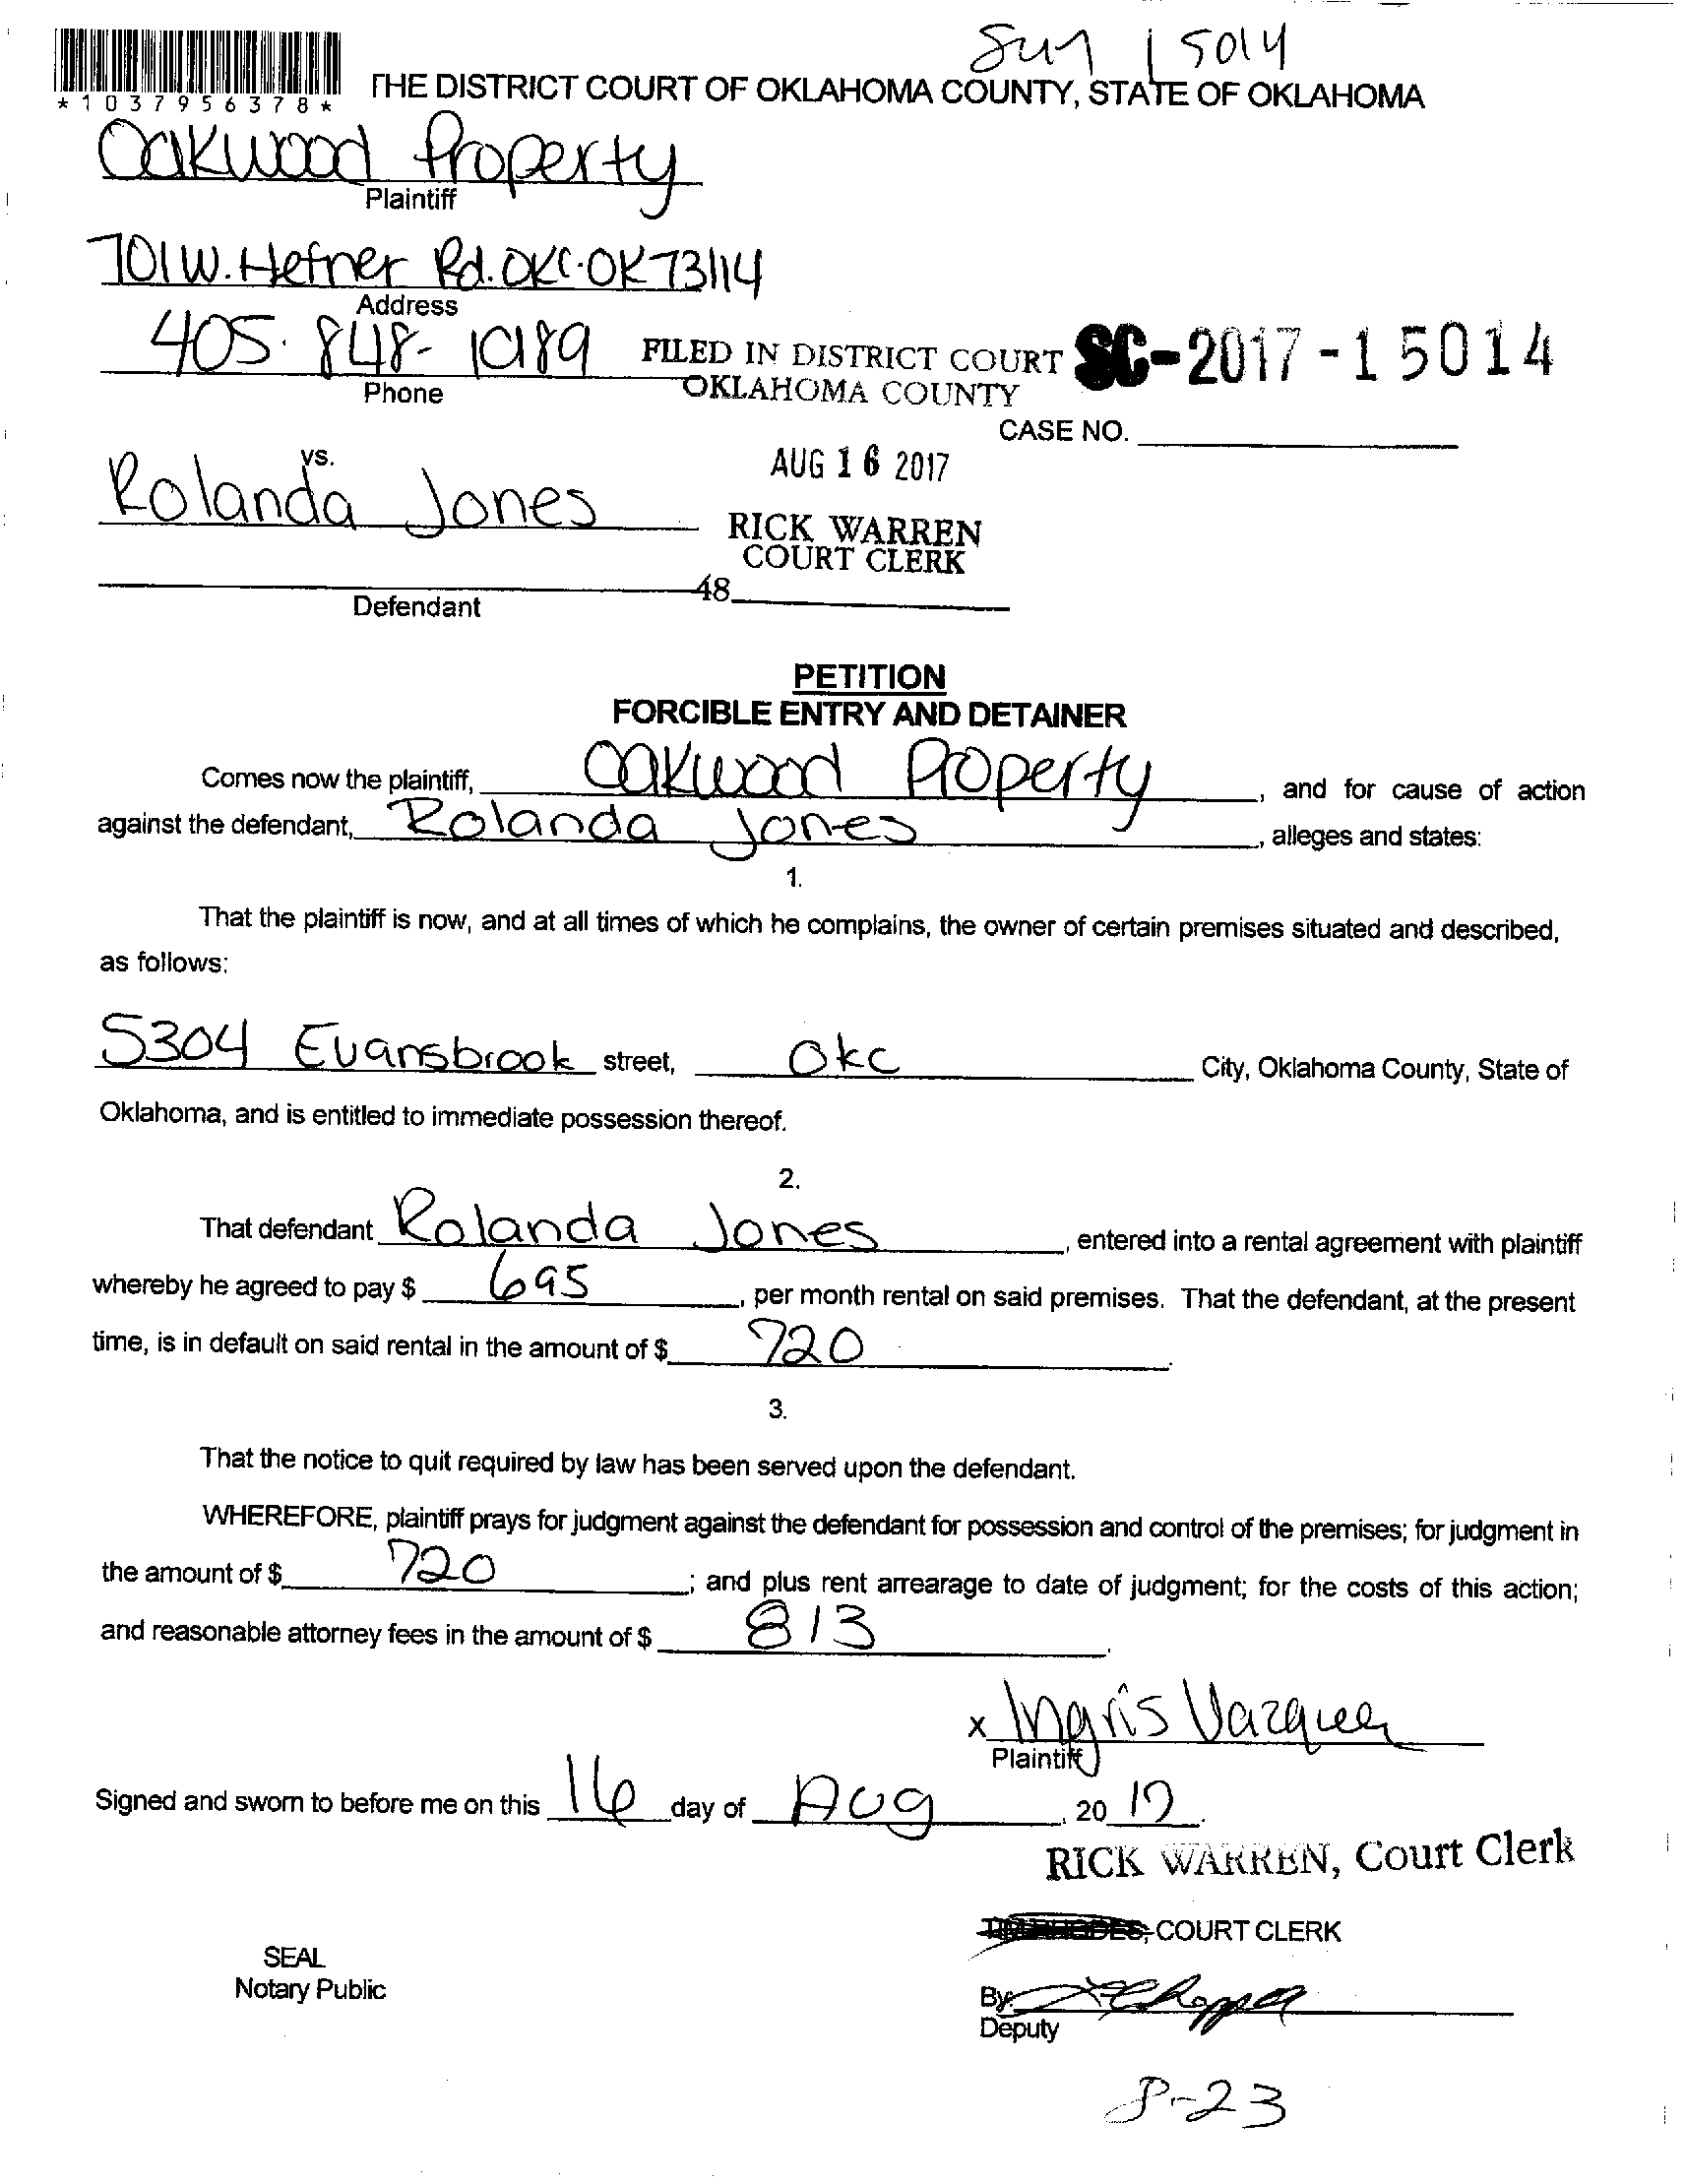 15014
*1037956378*
THE DISTRICT COURT OF OKLAHOMA COUNTY, STATE OF OKLAHOMA
Oakwood Property
Plaintiff
701 W. Hefner Rd. OKC. OK 73114
Address
405. 848-
Phone
FILED IN DISTRICT COURT
OKLAHOMA COUNTY
SC-2017-15014
CASE NO.
vs.
AUG 16 2017
Rolanda Jones
RICK WARREN
COURT CLERK
48
Defendant
PETITION
FORCIBLE ENTRY AND DETAINER
Comes now the plaintiff, Oakwood Property, and for cause of action
against the defendant, Rolanda Jones, alleges and states:
1.
That the plaintiff is now, and at all times of which he complains, the owner of certain premises situated and described,
as follows:
5304 Evansbrook street, OKC City, Oklahoma County, State of
Oklahoma, and is entitled to immediate possession thereof.
2.
That defendant Rolanda Jones, entered into a rental agreement with plaintiff
whereby he agreed to pay $ 695, per month rental on said premises. That the defendant, at the present
time, is in default on said rental in the amount of $ 720.
3.
That the notice to quit required by law has been served upon the defendant.
WHEREFORE, plaintiff prays for judgment against the defendant for possession and control of the premises; for judgment in
the amount of $ 720; and plus rent arrearage to date of judgment; for the costs of this action;
and reasonable attorney fees in the amount of $ 813.
x Ingris Vazquez
Plaintiff
Signed and sworn to before me on this 16 day of Aug, 2017.
RICK WARREN, Court Clerk
COURT CLERK
SEAL
Notary Public
By:
Deputy
8-23